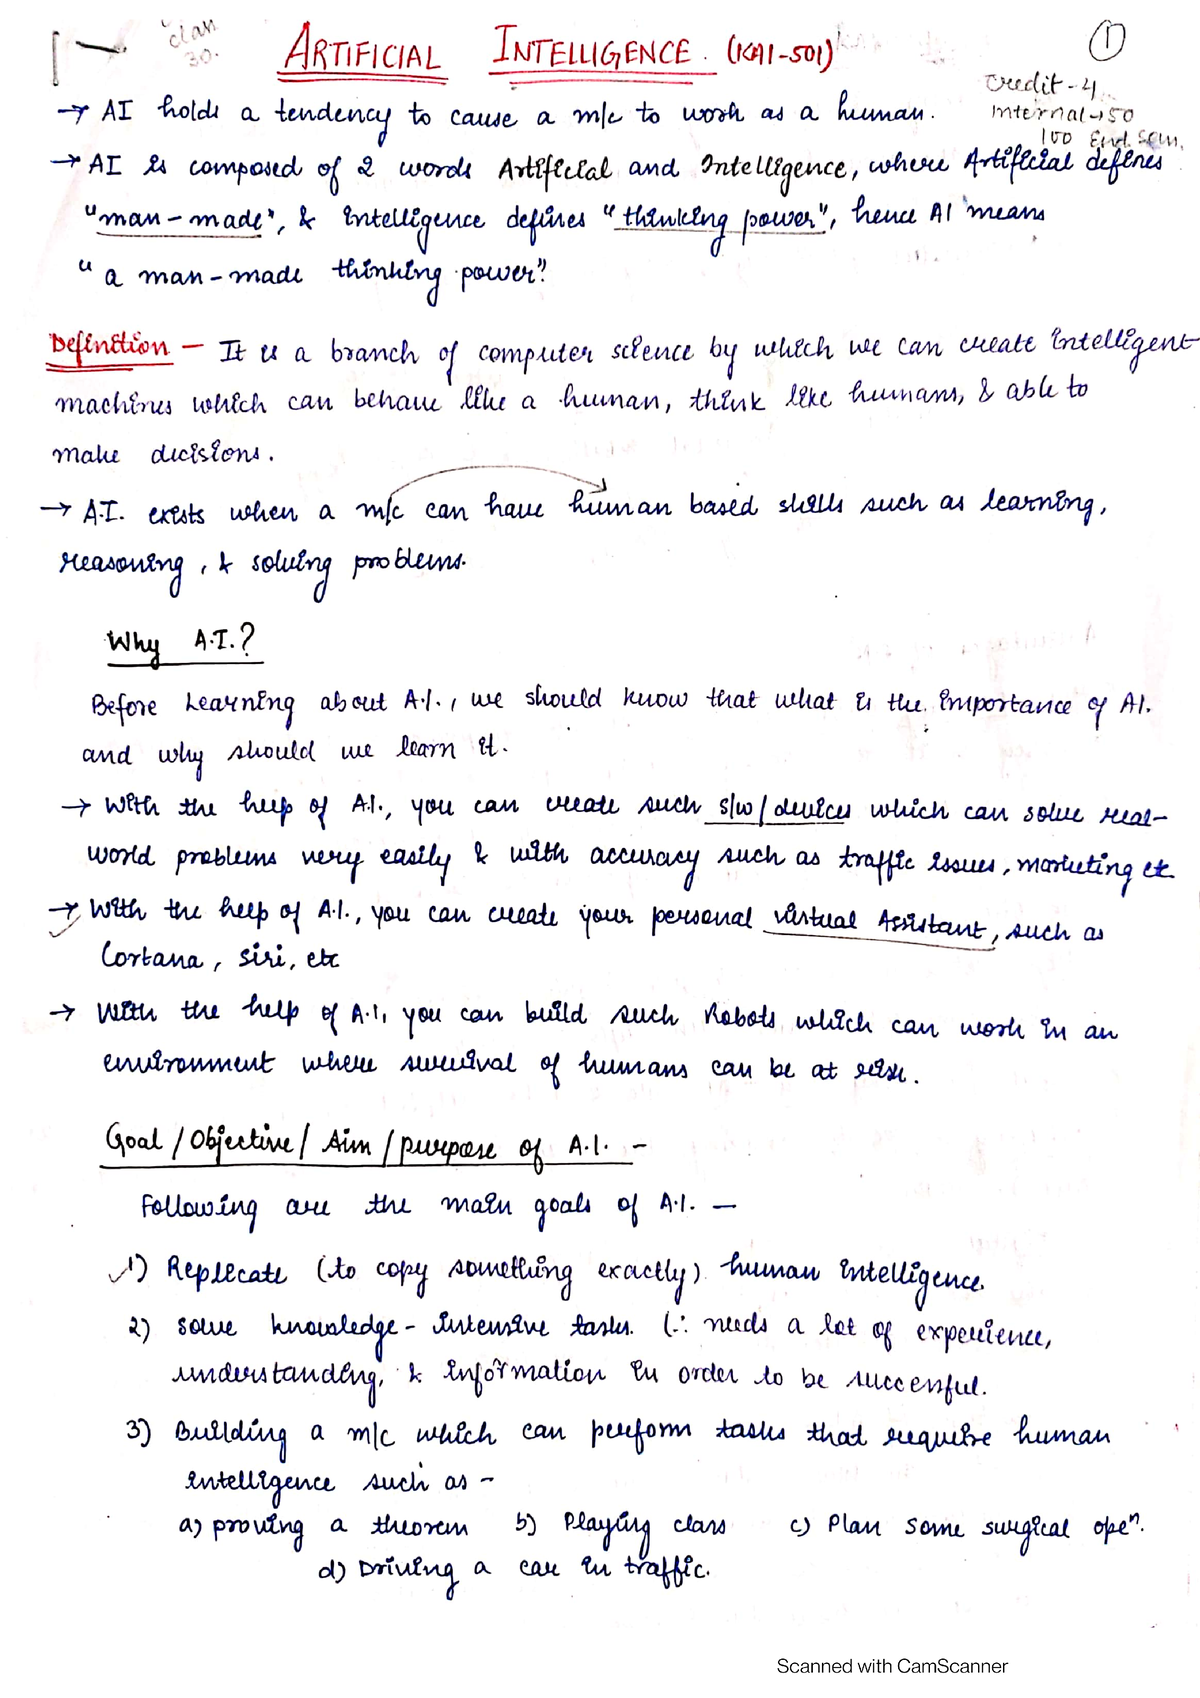 clan
30.
ARTIFICIAL INTELLIGENCE. (KAI-501)
1
Credit-4
Internal→50
100 End Sem.
→ AI holds a tendency to cause a m/c to work as a human.
→ AI is composed of 2 words Artificial and Intelligence, where Artificial defines
"man-made", & intelligence defines "thinking power", hence AI means
"a man-made thinking power"
Definition - It is a branch of computer science by which we can create intelligent
machines which can behave like a human, think like humans, & able to
make decisions.
→ A.I. exists when a m/c can have human based skills such as learning,
reasoning, & solving problems.
Why A.I.?
Before Learning about A.I., we should know that what is the importance of AI.
and why should we learn it.
→ With the help of A.I., you can create such s/w/devices which can solve real-
world problems very easily & with accuracy such as traffic issues, marketing etc
→ With the help of A.I., you can create your personal virtual Assistant, such as
Cortana, siri, etc
→ With the help of A.I, you can build such Robots which can work in an
environment where survival of humans can be at risk.
Goal/Objective/Aim/purpose of A.I. -
Following are the main goals of A.I. -
1) Replicate (to copy something exactly) human intelligence.
2) solve knowledge-intensive tasks. (∴ needs a lot of experience,
understanding, & information in order to be successful.
3) Building a m/c which can perform tasks that require human
intelligence such as -
a) proving a theorem b) Playing class c) Plan some surgical opeⁿ.
d) Driving a car in traffic.
Scanned with CamScanner